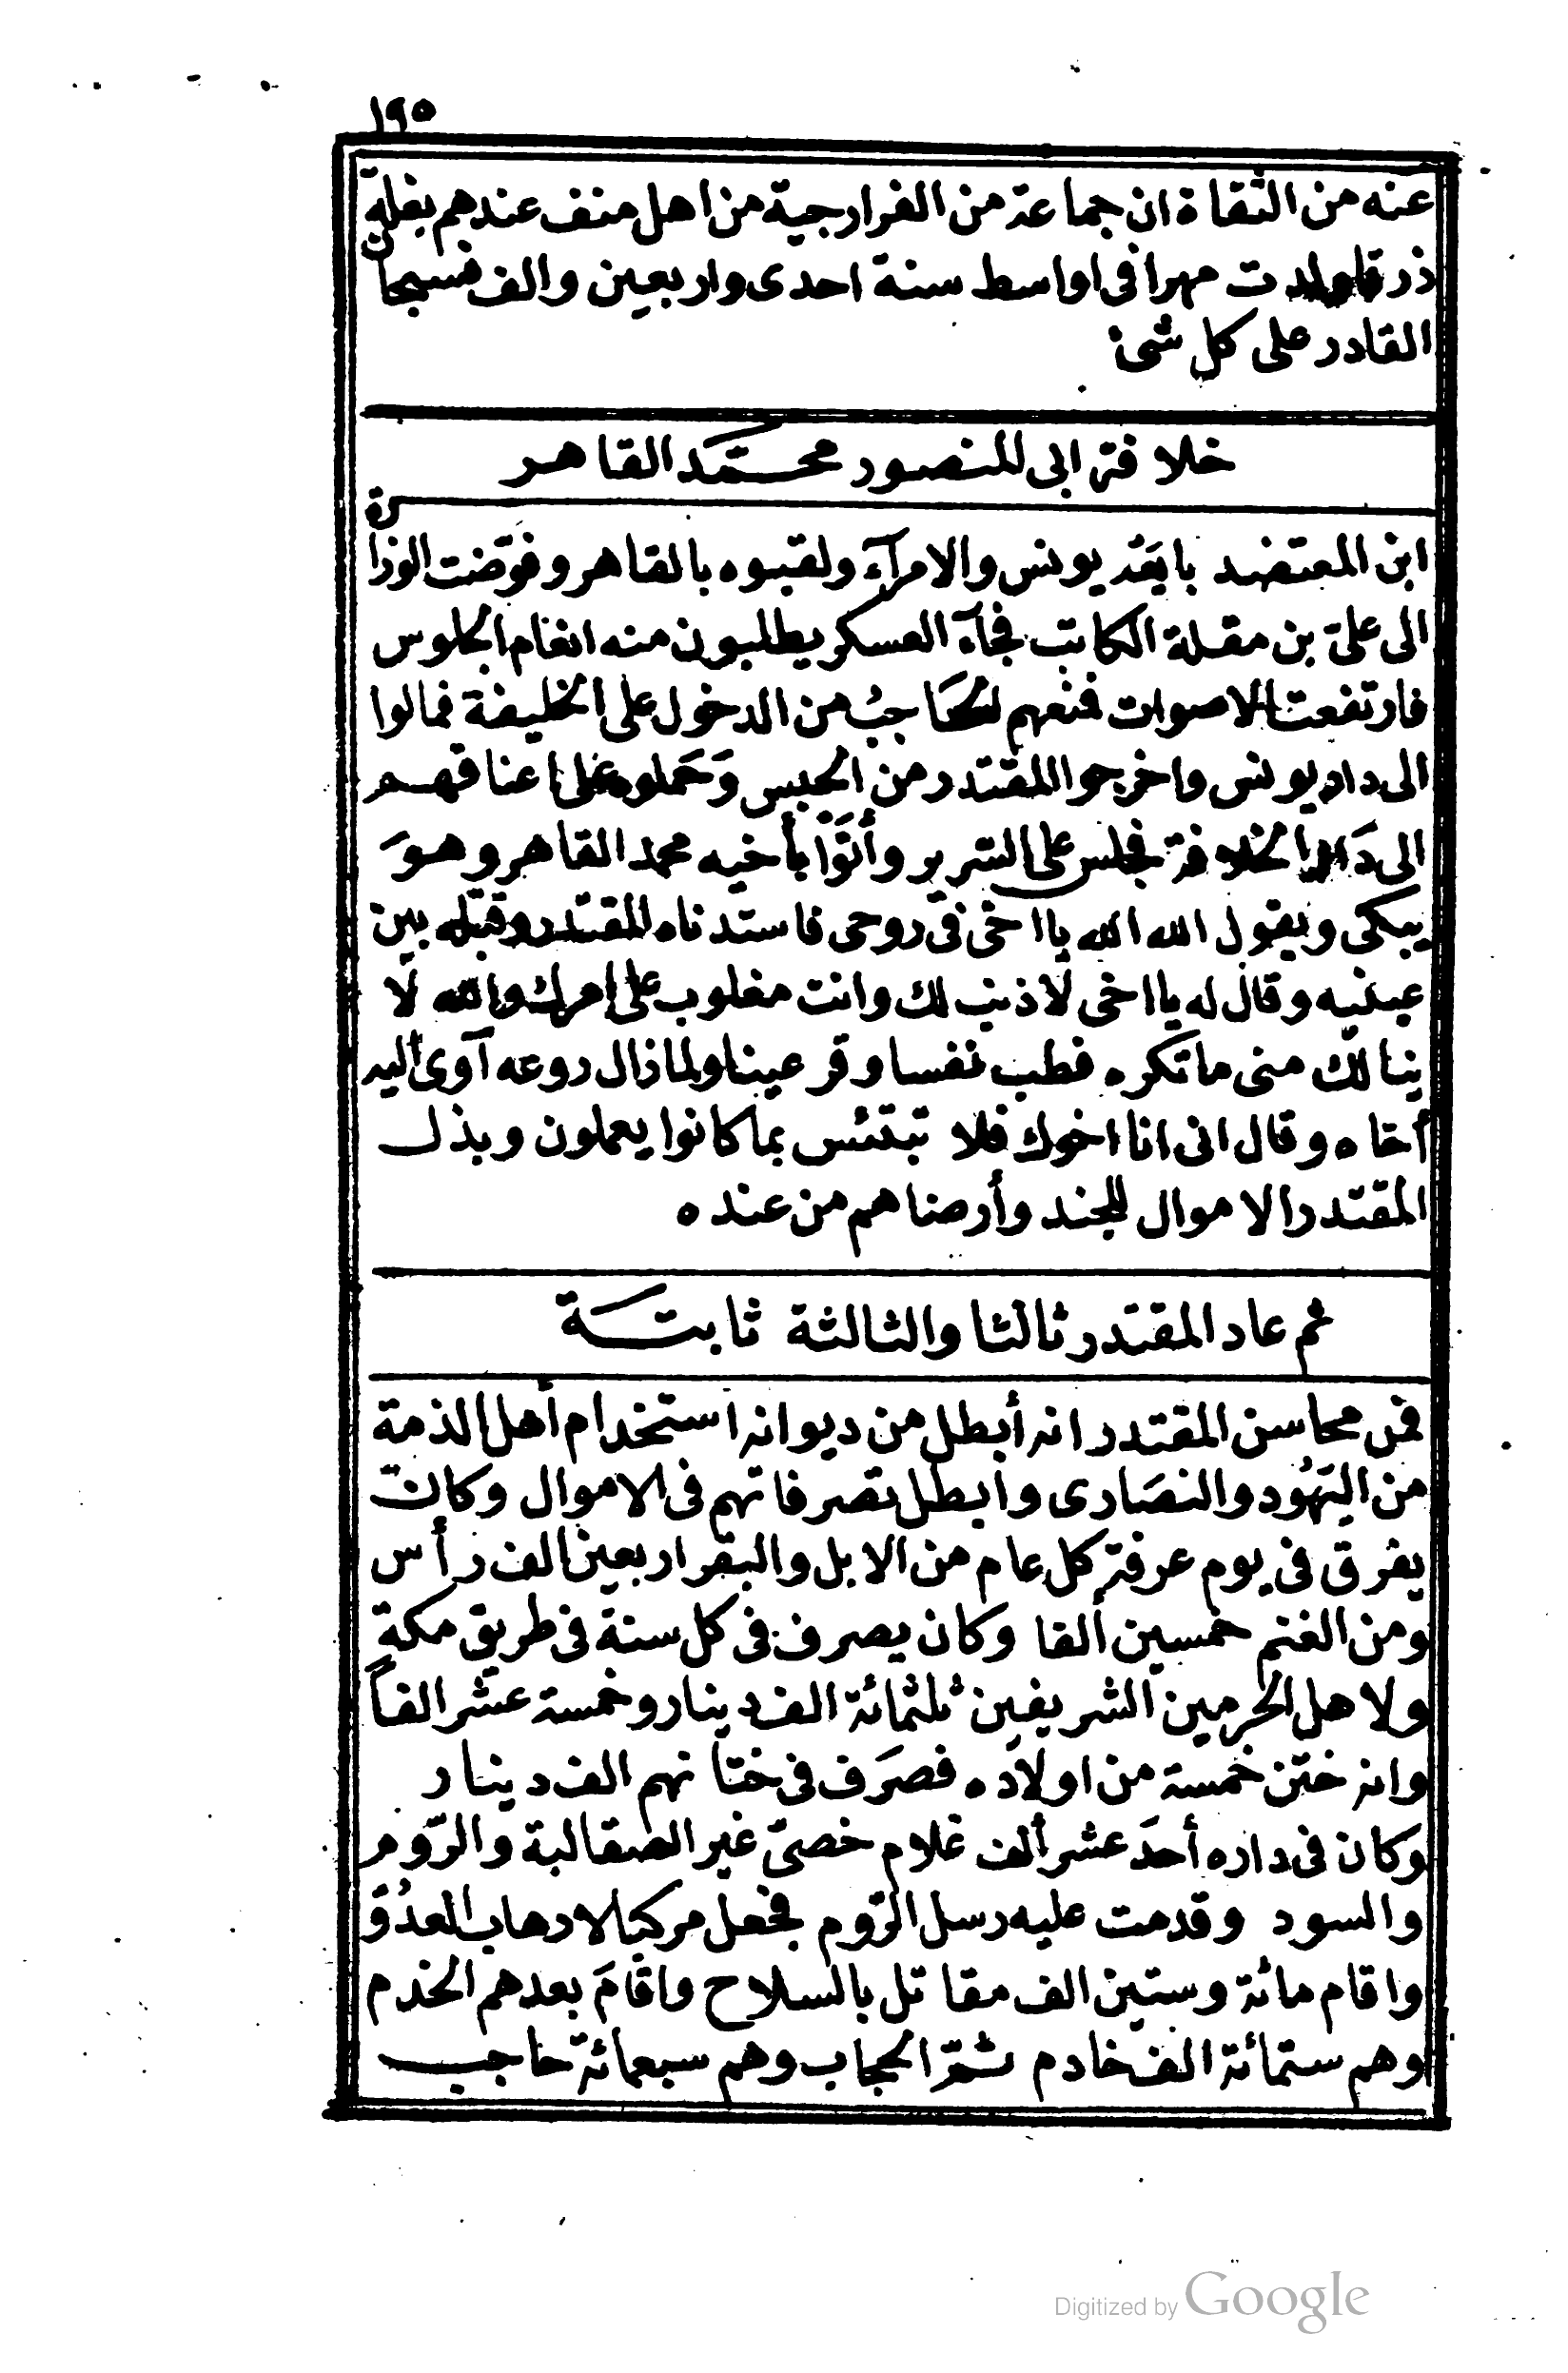 ١٩٥
عنه من الثقاة ان جماعة من الفرارجية من اهل منف عندهم بغلة
زرقا ولدت مهرا فى اواسط سنة احدى واربعين والف فسبحان
القادر على كل شئ
خلافة ابى المنصور محمد القاهر
ابن المعتضد بايعه يونس والامرآء ولقبوه بالقاهر وفوّضت الوزارة
الى علىّ بن مقلة الكاتب فجآء العسكر يطلبون منه انعام الجلوس
فارتفعت الاصوات فمنعهم الحَاجبُ من الدخول على الخليفة فمالوا
الى دار يونس واخرجوا المقتدر من الحبس وَحَملوه على اعناقهم
الى دَار الخلافة فجلس على السّرير وأتَوْا بأخيه محمد القاهر وهوَ
يبكى ويقول الله الله يا اخى فى روحى فاستدناه المقتدر وقبّله بين
عينيه وقال له يا اخى لا ذنب لك وانت مغلوب على امرك والله لا
ينالك منى ما تكره فطب نفسا وقر عينا ولما زال روعه آوى اليه
أخاه وقال انى انا اخوك فلا تبتئس بما كانوا يعملون وبذل
المقتدر الاموال للجند وأرضاهم من عنده
ثم عاد المقتدر ثالثا والثالثة ثابتة
فمن محاسن المقتدر انه أبطل من ديوانه استخدام أهل الذمة
من اليَهُود والنصَارى وابطل تصرفاتهم فى الاموال وكان
يفرق فى يوم عرفة كل عام من الابل والبقر اربعين الف رأس
ومن الغنم خمسين ألفا وكان يصرف فى كل سنة فى طريق مكة
ولاهل الحرمين الشريفين ثلثمائة الف دينار وخمسة عشر الفاً
وانه ختن خمسة من اولاده فصرَف فى ختانهم الف دينار
وكان فى داره أحدَ عشر ألف غلام خصىّ غير الصقالبة والرّوم
والسود وقدمت عليه رسل الرّوم فجعل مركبا لارهاب العدُوّ
واقام مائة وستين الف مقاتل بالسلاح واقامَ بعدهم الخدم
وهم ستمائة الف خادم ثمّ الحجاب وهم سبعمائة حاجب
Digitized by Google